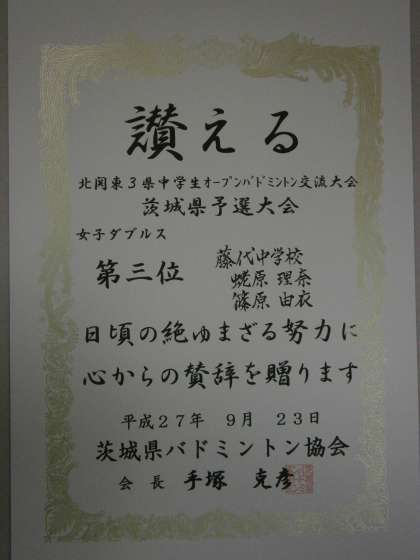 讃える
北関東3県中学生オープンバドミントン交流大会
茨城県予選大会
女子ダブルス
第三位
藤代中学校
蛯原 理奈
篠原 由衣
日頃の絶ゆまざる努力に
心からの賛辞を贈ります
平成27年 9月 23日
茨城県バドミントン協会
会長 手塚 克彦